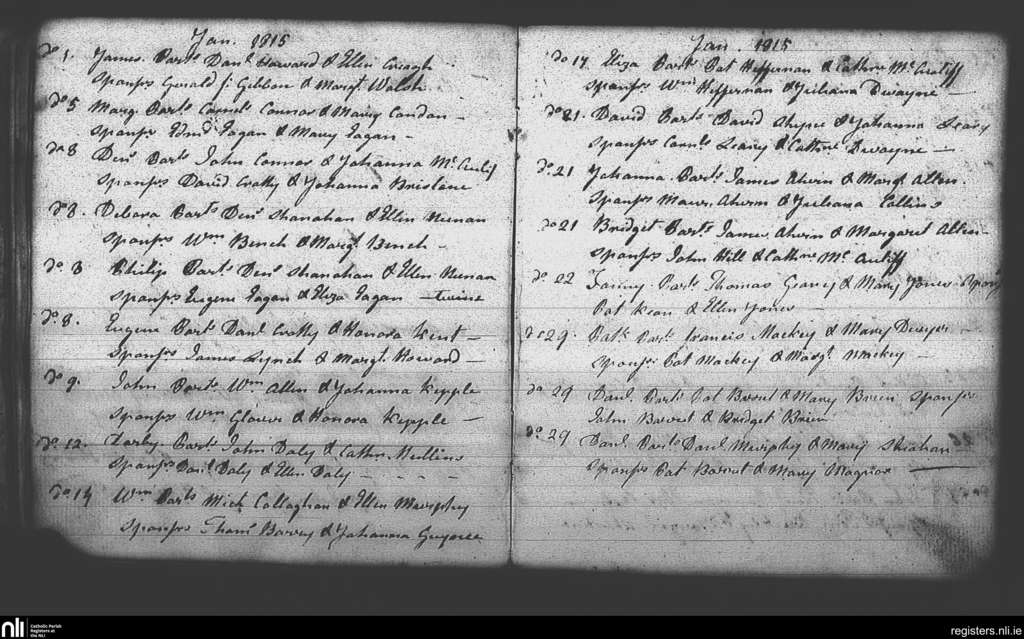 Jan. 1815
do 1. James. Parts Danl Howard & Ellen Creagh
Sponsrs Gerald f: Gibbon & Margt Walsh
do 5 Marg. Parts Cornls Connor & Mary Condon -
Sponsrs Edmd Fagan & Mary Fagan -
do 8 Denl Parts John Connor & Johanna Mc Aulif
Sponsrs David Crotty & Johanna Brislane
do 8. Debora Parts Denl Shanahan & Ellen Neenan
Sponsrs Wm Bench & Margt Bench -
do. 8 Philip Parts Denl Shanahan & Ellen Neenan
Sponsrs Eugene Fagan & Eliza Fagan - twins
do. 8. Eugene Parts Danl Crotty & Honora Kent -
Sponsrs James Lynch & Margt. Howard -
do 9. John Parts Wm Allen & Johanna Kepple
Sponsrs Wm & Honora Kepple -
do. 12. Parts John Daly & Cathn Mullins
Sponsrs Danl Daly & Ellen Daly - - - -
do 14 Wm Parts Mick Callaghan & Ellen Murphy
Sponsrs Thoms Barry & Johanna
Jan. 1815
do 17. Eliza Parts Pat Heffernan & Cathne Mc Auliff
Sponsrs Wm Heffernan & Juliana Dwayne -
do 21. David Parts David & Johanna Leary
Sponsrs Cornls Leary & Cathne Dwayne -
do. 21 Johanna. Parts James Ahern & Margt Allen.
Sponsrs Maurs Ahern & Juliana Collins
do 21 Bridget Parts James Ahern & Margaret Allen
Sponsrs John Hill & Cathne Mc Auliff
do. 22 Fanny Parts Thomas & Mary Jones Spons
Pat Kean & Ellen Jones
do 29. Patk Parts Francis Mackey & Mary Dwyer -
Sponsrs Pat Mackey & Margt Mackey -
do 29 Danl Parts Pat Barret & Mary Brien Sponsrs
John Barret & Bridget Brien
do. 29 Danl. Parts Danl Murphy & Mary Shehan
Sponsrs Pat Barret & Mary Magner
nli
Catholic Parish
Registers at
the NLI
registers.nli.ie